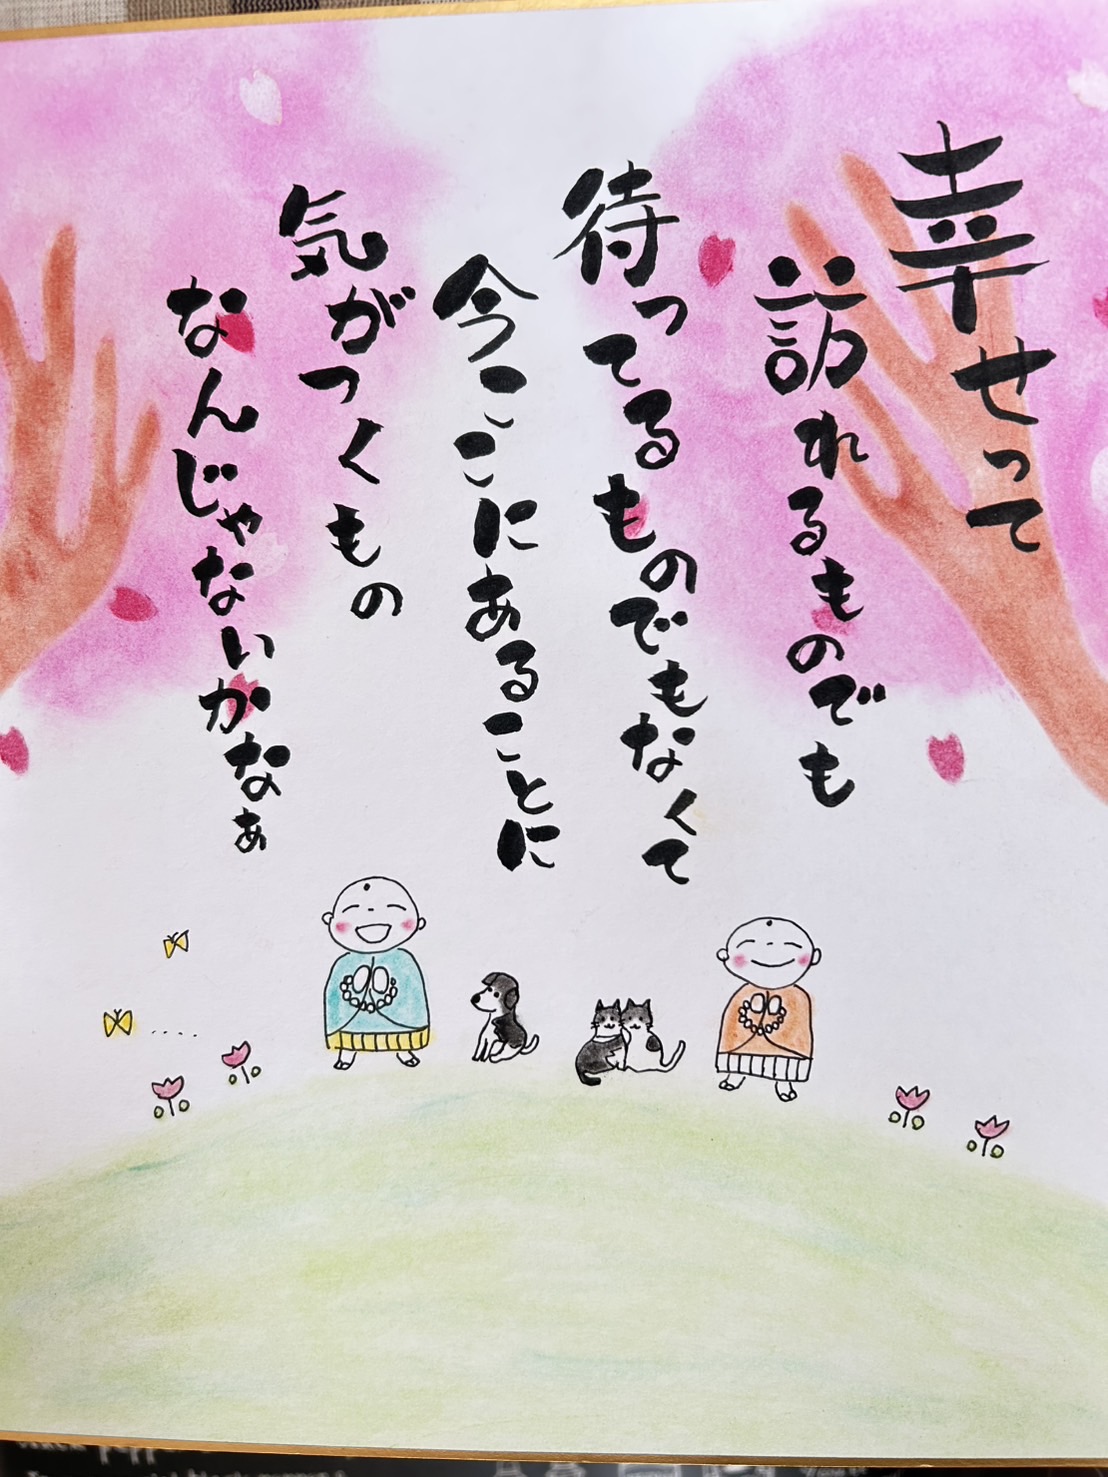 幸せって
訪れるものでも
待ってるものでもなくて
今ここにあることに
気がつくもの
なんじゃないかなぁ